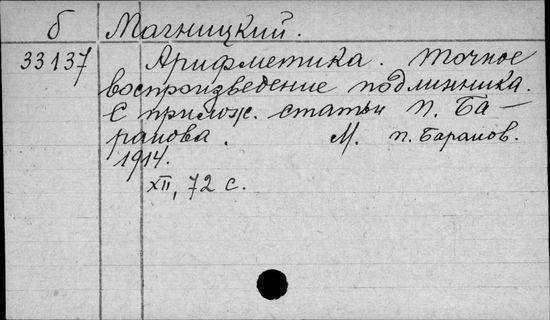 б Магницкий.
33137 Арифметика. Точное
воспроизведение подлинника.
С прилож. статьи П. Ба-
ранова. М. П. Баранов.
1914.
XII, 72 с.